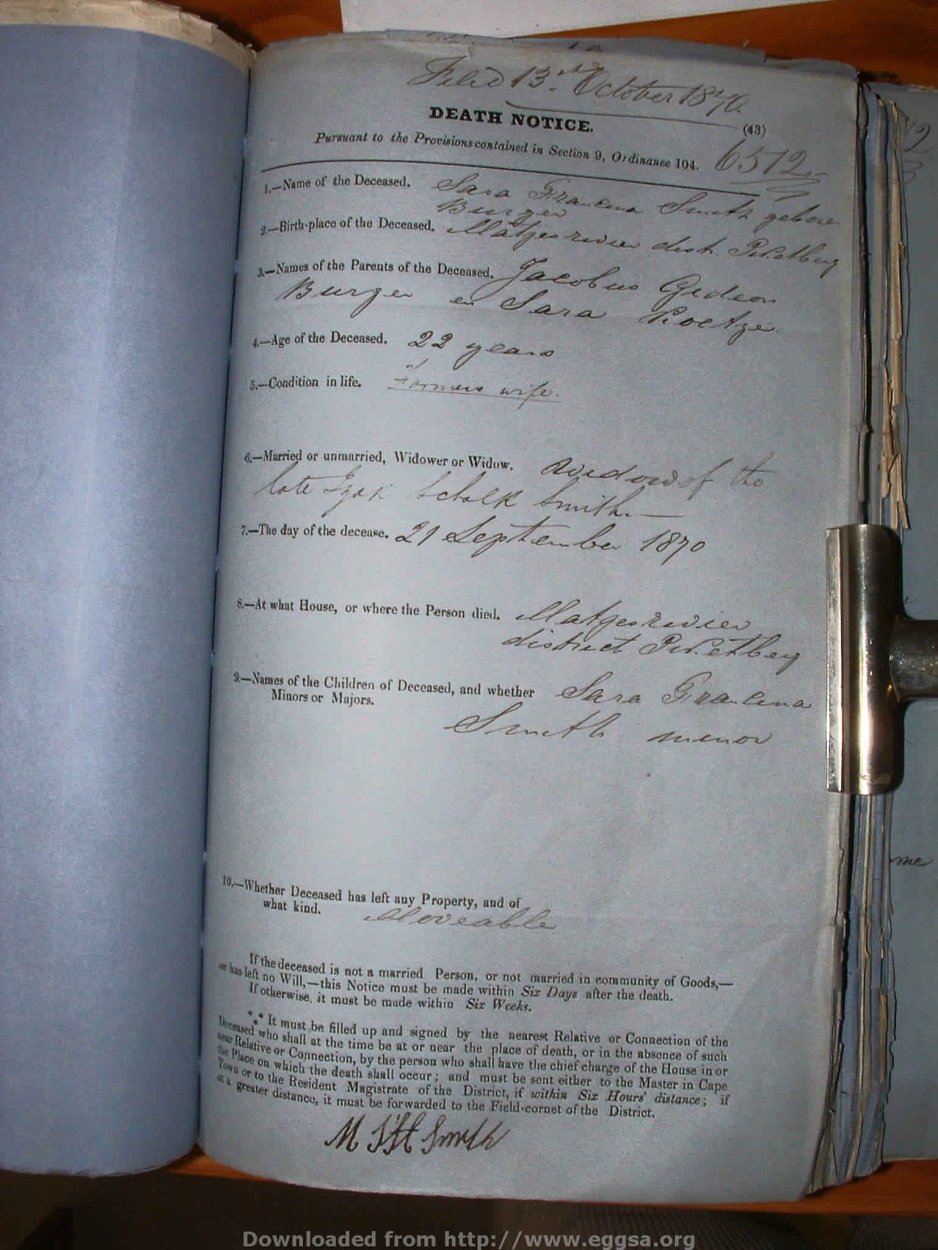 Filed 13th October 1870.
DEATH NOTICE.
(43)
Pursuant to the Provisions contained in Section 9, Ordinance 104.
6512
1.—Name of the Deceased. Sara Francina Smith geboren
Burger
2.—Birth-place of the Deceased. Matjesrivier dist.
3.—Names of the Parents of the Deceased. Jacobus Gideon
Burger en Sara Koetze
4.—Age of the Deceased. 22 years
5.—Condition in life. Farmers wife.
6.—Married or unmarried, Widower or Widow. Widow of the
late Izak Schalk Smith.—
7.—The day of the decease. 21 September 1870
8.—At what House, or where the Person died. Matjesrivier
district
9.—Names of the Children of Deceased, and whether Sara Francina
Minors or Majors. Smith minor
10.—Whether Deceased has left any Property, and of
what kind. Moveable
If the deceased is not a married Person, or not married in community of Goods,—
or has left no Will,—this Notice must be made within Six Days after the death.
If otherwise, it must be made within Six Weeks.
*** It must be filled up and signed by the nearest Relative or Connection of the
Deceased who shall at the time be at or near the place of death, or in the absence of such
near Relative or Connection, by the person who shall have the chief charge of the House in or
the Place on which the death shall occur; and must be sent either to the Master in Cape
Town or to the Resident Magistrate of the District, if within Six Hours' distance; if
at a greater distance, it must be forwarded to the Field-cornet of the District.
Smith
me
Downloaded from http://www.eggsa.org